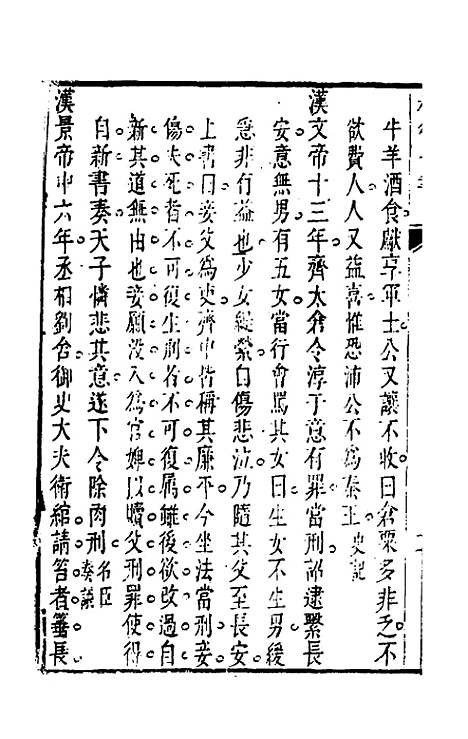 牛羊酒食獻享軍士公又讓不收曰倉粟多非乏不
欲費人人又益喜惟恐沛公不爲秦王史記
漢文帝十三年齊太倉令淳于意有罪當刑詔逮繫長
安意無男有五女當行會罵其女曰生女不生男緩
急非有益也少女緹縈自傷悲泣乃隨其父至長安
上書曰妾父爲吏齊中皆稱其廉平今坐法當刑妾
傷夫死者不可復生刑者不可復屬雖後欲改過自
新其道無由也妾願沒入爲官婢以贖父刑罪使得
自新書奏天子憐悲其意遂下令除肉刑名臣奏議
漢景帝中六年丞相劉舍御史大夫衛綰請笞者箠長